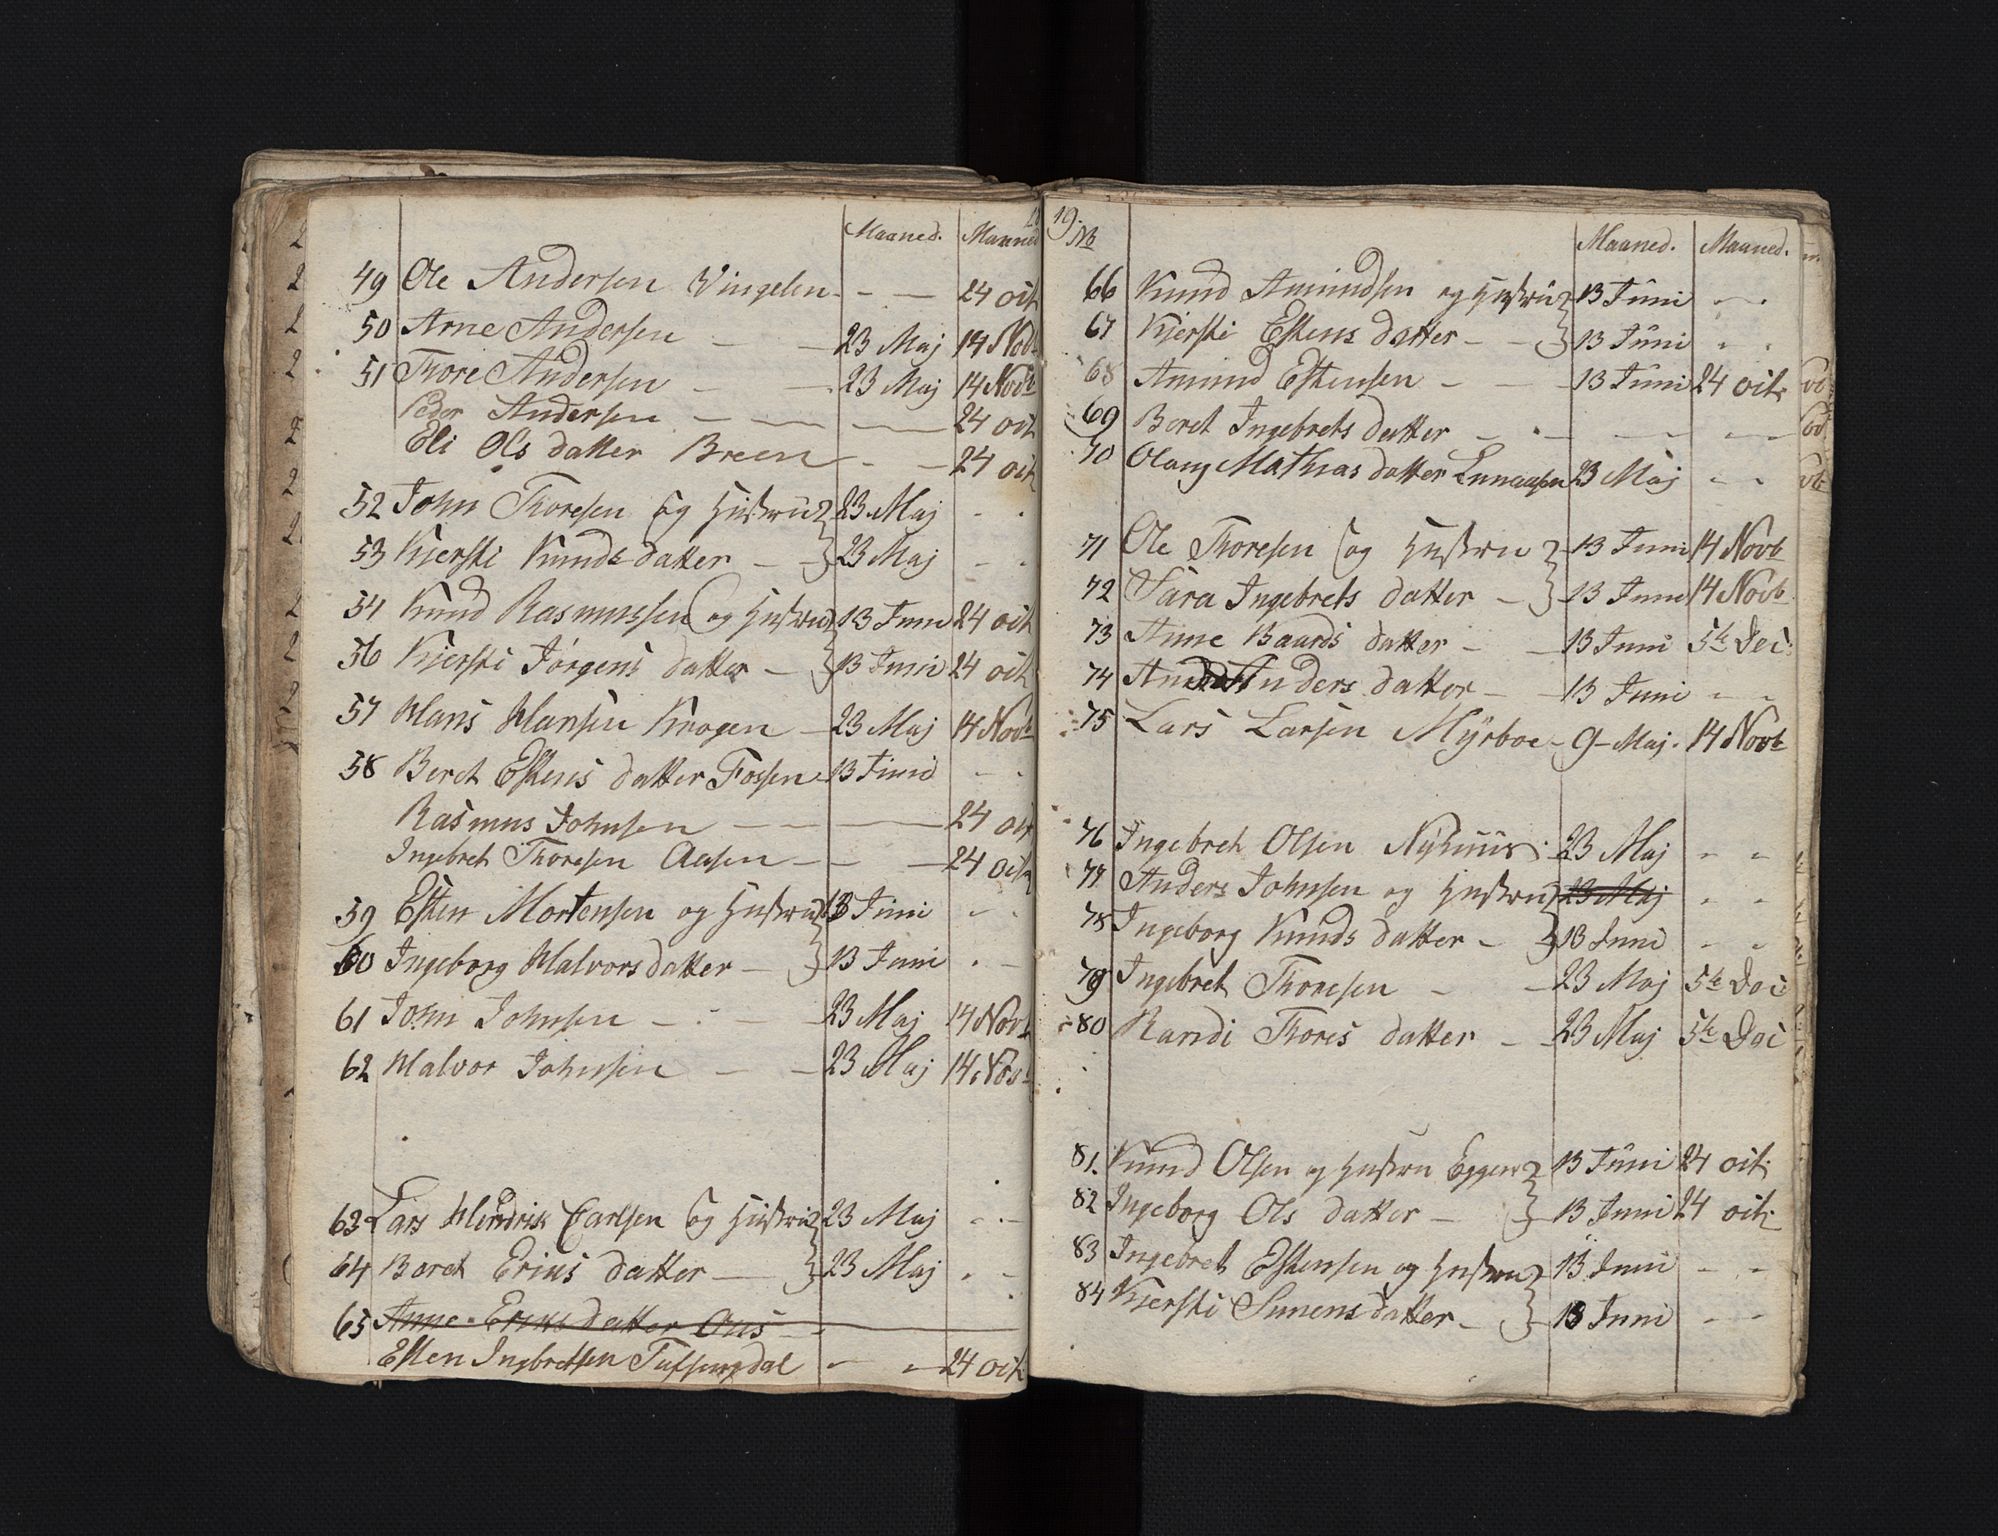 Maaned. Maaned
49 Ole Andersen Vingelen - - - 24 oct
50 Arne Andersen - - 23 Maj 14 Novb
51 Thore Andersen - - 23 Maj 14 Novb
Peder Andersen - - - 24 oct
Eli Ols datter Breen - - 24 oct
52 John Thoresen og Hustru 23 Maj - -
53 Kjersti Knuds datter - - 23 Maj - -
54 Knud Rasmussen og Hustru 13 Juni 24 oct
56 Kjersti Jörgens datter - 13 Juni 24 oct
57 Hans Hansen Krogen - 23 Maj 14 Novb
58 Beret Estens datter Fossen - 13 Juni - -
Rasmus Johnsen - - - 24 oct
Ingebret Thoresen Aasen - - - 24 oct
59 Esten Mortensen og Hustru 13 Juni - -
60 Ingeborg Halvors datter - 13 Juni - -
61 John Johnsen - - - 23 Maj 14 Novb
62 Halvor Johnsen - - 23 Maj 14 Novb
63 Lars Hendrik Carlsen og Hustru 23 Maj - -
64 Beret Erius datter - 23 Maj - -
65 Anne Eriks datter Aas -
Esten Ingbretsen Tufsingdal - - 24 oct
19.
No Maaned. Maaned.
66 Knud Amundsen og Hustru 13 Juni - -
67 Kjersti Estens datter - - 13 Juni - -
68 Amund Estensen - - 13 Juni 24 oct.
69 Beret Ingebrets datter - - - -
70 Olaug Mathias datter 23 Maj - -
71 Ole Thoresen og Hustru 13 Juni 14 Novb
72 Sara Ingebrets datter - 13 Juni 14 Novb
73 Anne Baards datter - - 13 Juni 5te Dec:
74 Anders datter - - 13 Juni - -
75 Lars Larsen Mÿrboe - 9 - Maj. 14 Novb
76 Ingebret Olsen Nÿhuus. 23 Maj - -
77 Anders Johnsen og Hustru 23 Maj - -
78 Ingeborg Knuds datter - 13 Juni - -
79 Ingebret Thoresen - - 23 Maj 5te Dec
80 Randi Thores datter - - 23 Maj 5te Dec
81. Knud Olsen og Hustru Eggen 13 Juni 24 oct.
82 Ingeborg Ols datter - - 13 Juni 24 oct.
83 Ingebret Estensen og Hustru 13 Juni - -
84 Kjersti Simens datter - - 13 Juni - -